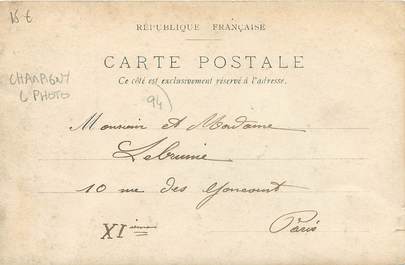 15 €
RÉPUBLIQUE FRANÇAISE
CARTE POSTALE
Ce côté est exclusivement réservé à l'adresse.
CHAMPIGNY
C PHOTO
94)
Monsieur et Madame
Lebrunie
10 rue des Goncourt
XIième
Paris